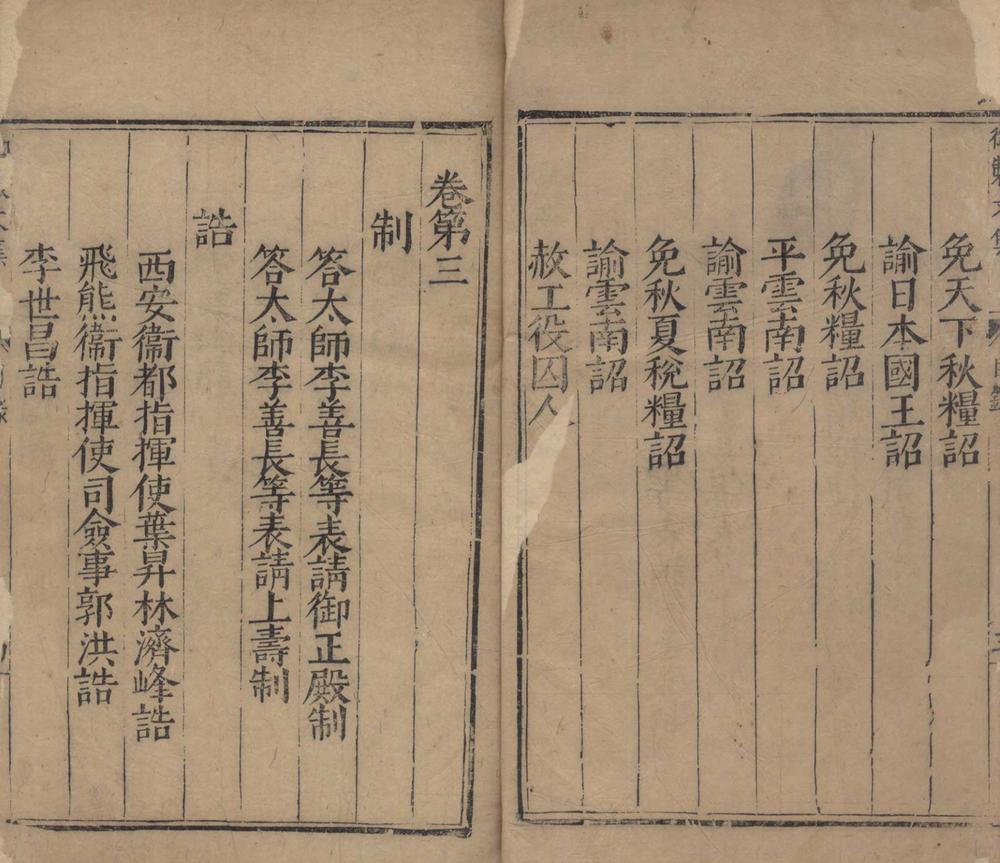 免天下秋糧詔
諭日本國王詔
免秋糧詔
平雲南詔
諭雲南詔
免秋夏稅糧詔
諭雲南詔
赦工役囚人
卷第三
制
答太師李善長等表請御正殿制
答太師李善長等表請上壽制
誥
西安衞都指揮使葉昇林濟峰誥
飛熊衞指揮使司僉事郭洪誥
李世昌誥